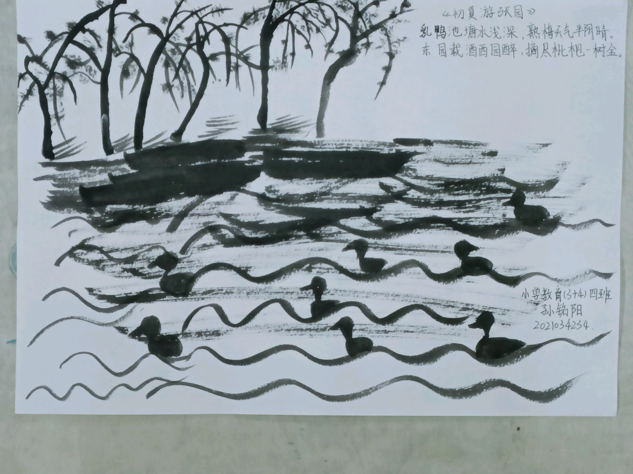 《初夏游张园》
乳鸭池塘水浅深，熟梅天气半阴晴。
东园载酒西园醉，摘尽枇杷一树金。
小学教育(3+4)四班
孙铭阳
2021034234